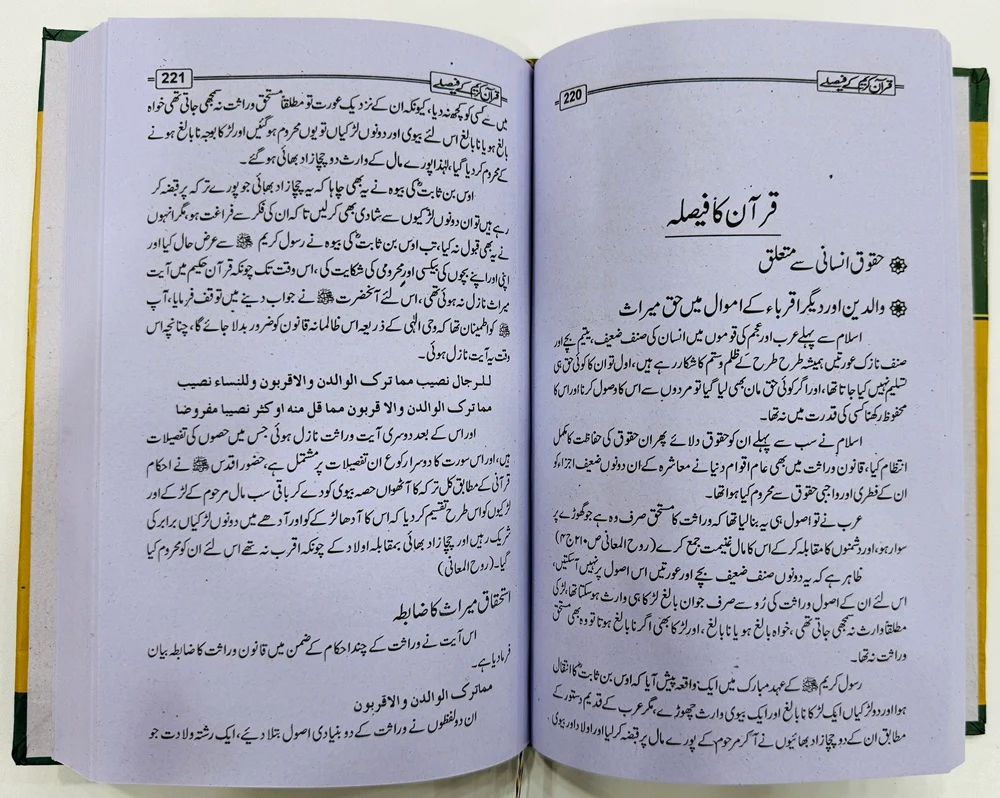 قرآن کریم کے فیصلے
220
قرآن کا فیصلہ
حقوق انسانی سے متعلق
والدین اور دیگر اقرباء کے اموال میں حق میراث
اسلام سے پہلے عرب اور عجم کی قوموں میں انسان کی صنف ضعیف، یتیم بچے اور
صنف نازک عورتیں ہمیشہ طرح طرح کے ظلم وستم کا شکار رہے ہیں، اول تو ان کا کوئی حق ہی
تسلیم نہیں کیا جاتا تھا، اور اگر کوئی حق مان بھی لیا گیا تو مردوں سے اس کا وصول کرنا اور اس کا
محفوظ رکھنا کسی کی قدرت میں نہ تھا۔
اسلام نے سب سے پہلے ان کو حقوق دلائے پھر ان حقوق کی حفاظت کا مکمل
انتظام کیا، قانون وراثت میں بھی عام اقوام دنیا نے معاشرہ کے ان دونوں ضعیف اجزاء کو
ان کے فطری اور واجبی حقوق سے محروم کیا ہوا تھا۔
عرب نے تو اصول ہی یہ بنا لیا تھا کہ وراثت کا مستحق صرف وہ ہے جو گھوڑے پر
سوار ہو، اور دشمنوں کا مقابلہ کر کے اس کا مال غنیمت جمع کرے (روح المعانی ص ۲۱۰ ج ۴)
ظاہر ہے کہ یہ دونوں صنف ضعیف بچے اور عورتیں اس اصول پر نہیں آسکتیں،
اس لئے ان کے اصول وراثت کی رُو سے صرف جوان بالغ لڑکا ہی وارث ہو سکتا تھا، لڑکی
مطلقا وارث نہ سمجھی جاتی تھی، خواہ بالغ ہو یا نا بالغ، اور لڑکا بھی اگر نا بالغ ہوتا تو وہ بھی مستحق
وراثت نہ تھا۔
رسول کریم ﷺ کے عہد مبارک میں ایک واقعہ پیش آیا کہ اوس بن ثابتؓ کا انتقال
ہوا اور دو لڑکیاں ایک لڑکا نا بالغ اور ایک بیوی وارث چھوڑے، مگر عرب کے قدیم دستور کے
مطابق ان کے دو چچازاد بھائیوں نے آکر مرحوم کے پورے مال پر قبضہ کر لیا اور اولاد اور بیوی
قرآن کریم کے فیصلے
221
میں سے کسی کو کچھ نہ دیا، کیونکہ ان کے نزدیک عورت تو مطلقا مستحق وراثت نہ سمجھی جاتی تھی خواہ
بالغ ہو یا نا بالغ اس لئے بیوی اور دونوں لڑکیاں تو یوں محروم ہو گئیں اور لڑکا بوجہ نا بالغ ہونے
کے محروم کر دیا گیا، لہٰذا پورے مال کے وارث دو چچازاد بھائی ہو گئے۔
اوس بن ثابتؓ کی بیوہ نے یہ بھی چاہا کہ یہ چچازاد بھائی جو پورے ترکہ پر قبضہ کر
رہے ہیں تو ان دونوں لڑکیوں سے شادی بھی کر لیں تاکہ ان کی فکر سے فراغت ہو، مگر انہوں
نے یہ بھی قبول نہ کیا، تب اوس بن ثابتؓ کی بیوہ نے رسول کریم ﷺ سے عرض حال کیا اور
اپنی اور اپنے بچوں کی بیکسی اور محرومی کی شکایت کی، اس وقت تک چونکہ قرآن حکیم میں آیت
میراث نازل نہ ہوئی تھی، اس لئے آنحضرت ﷺ نے جواب دینے میں توقف فرمایا، آپ
ﷺ کو اطمینان تھا کہ وحی الٰہی کے ذریعہ اس ظالمانہ قانون کو ضرور بدلا جائے گا، چنانچہ اس
وقت یہ آیت نازل ہوئی۔
للرجال نصیب مما ترک الوالدن والاقربون وللنساء نصیب
مما ترک الوالدن والا قربون مما قل منہ اوکثر نصیبا مفروضا
اور اس کے بعد دوسری آیت وراثت نازل ہوئی جس میں حصوں کی تفصیلات
ہیں، اور اس سورت کا دوسرا رکوع ان تفصیلات پر مشتمل ہے، حضور اقدس ﷺ نے احکام
قرآنی کے مطابق کل ترکہ کا آٹھواں حصہ بیوی کو دے کر باقی سب مال مرحوم کے لڑکے اور
لڑکیوں کو اس طرح تقسیم کر دیا کہ اس کا آدھا لڑکے کو اور آدھے میں دونوں لڑکیاں برابر کی
شریک رہیں اور چچازاد بھائی بمقابلہ اولاد کے چونکہ اقرب نہ تھے اس لئے ان کو محروم کیا
گیا۔ (روح المعانی)
استحقاق میراث کا ضابطہ
اس آیت نے وراثت کے چند احکام کے ضمن میں قانون وراثت کا ضابطہ بیان
فرما دیا ہے۔
مماترک الوالدن والاقربون
ان دو لفظوں نے وراثت کے دو بنیادی اصول بتلا دیئے، ایک رشتہ ولادت جو